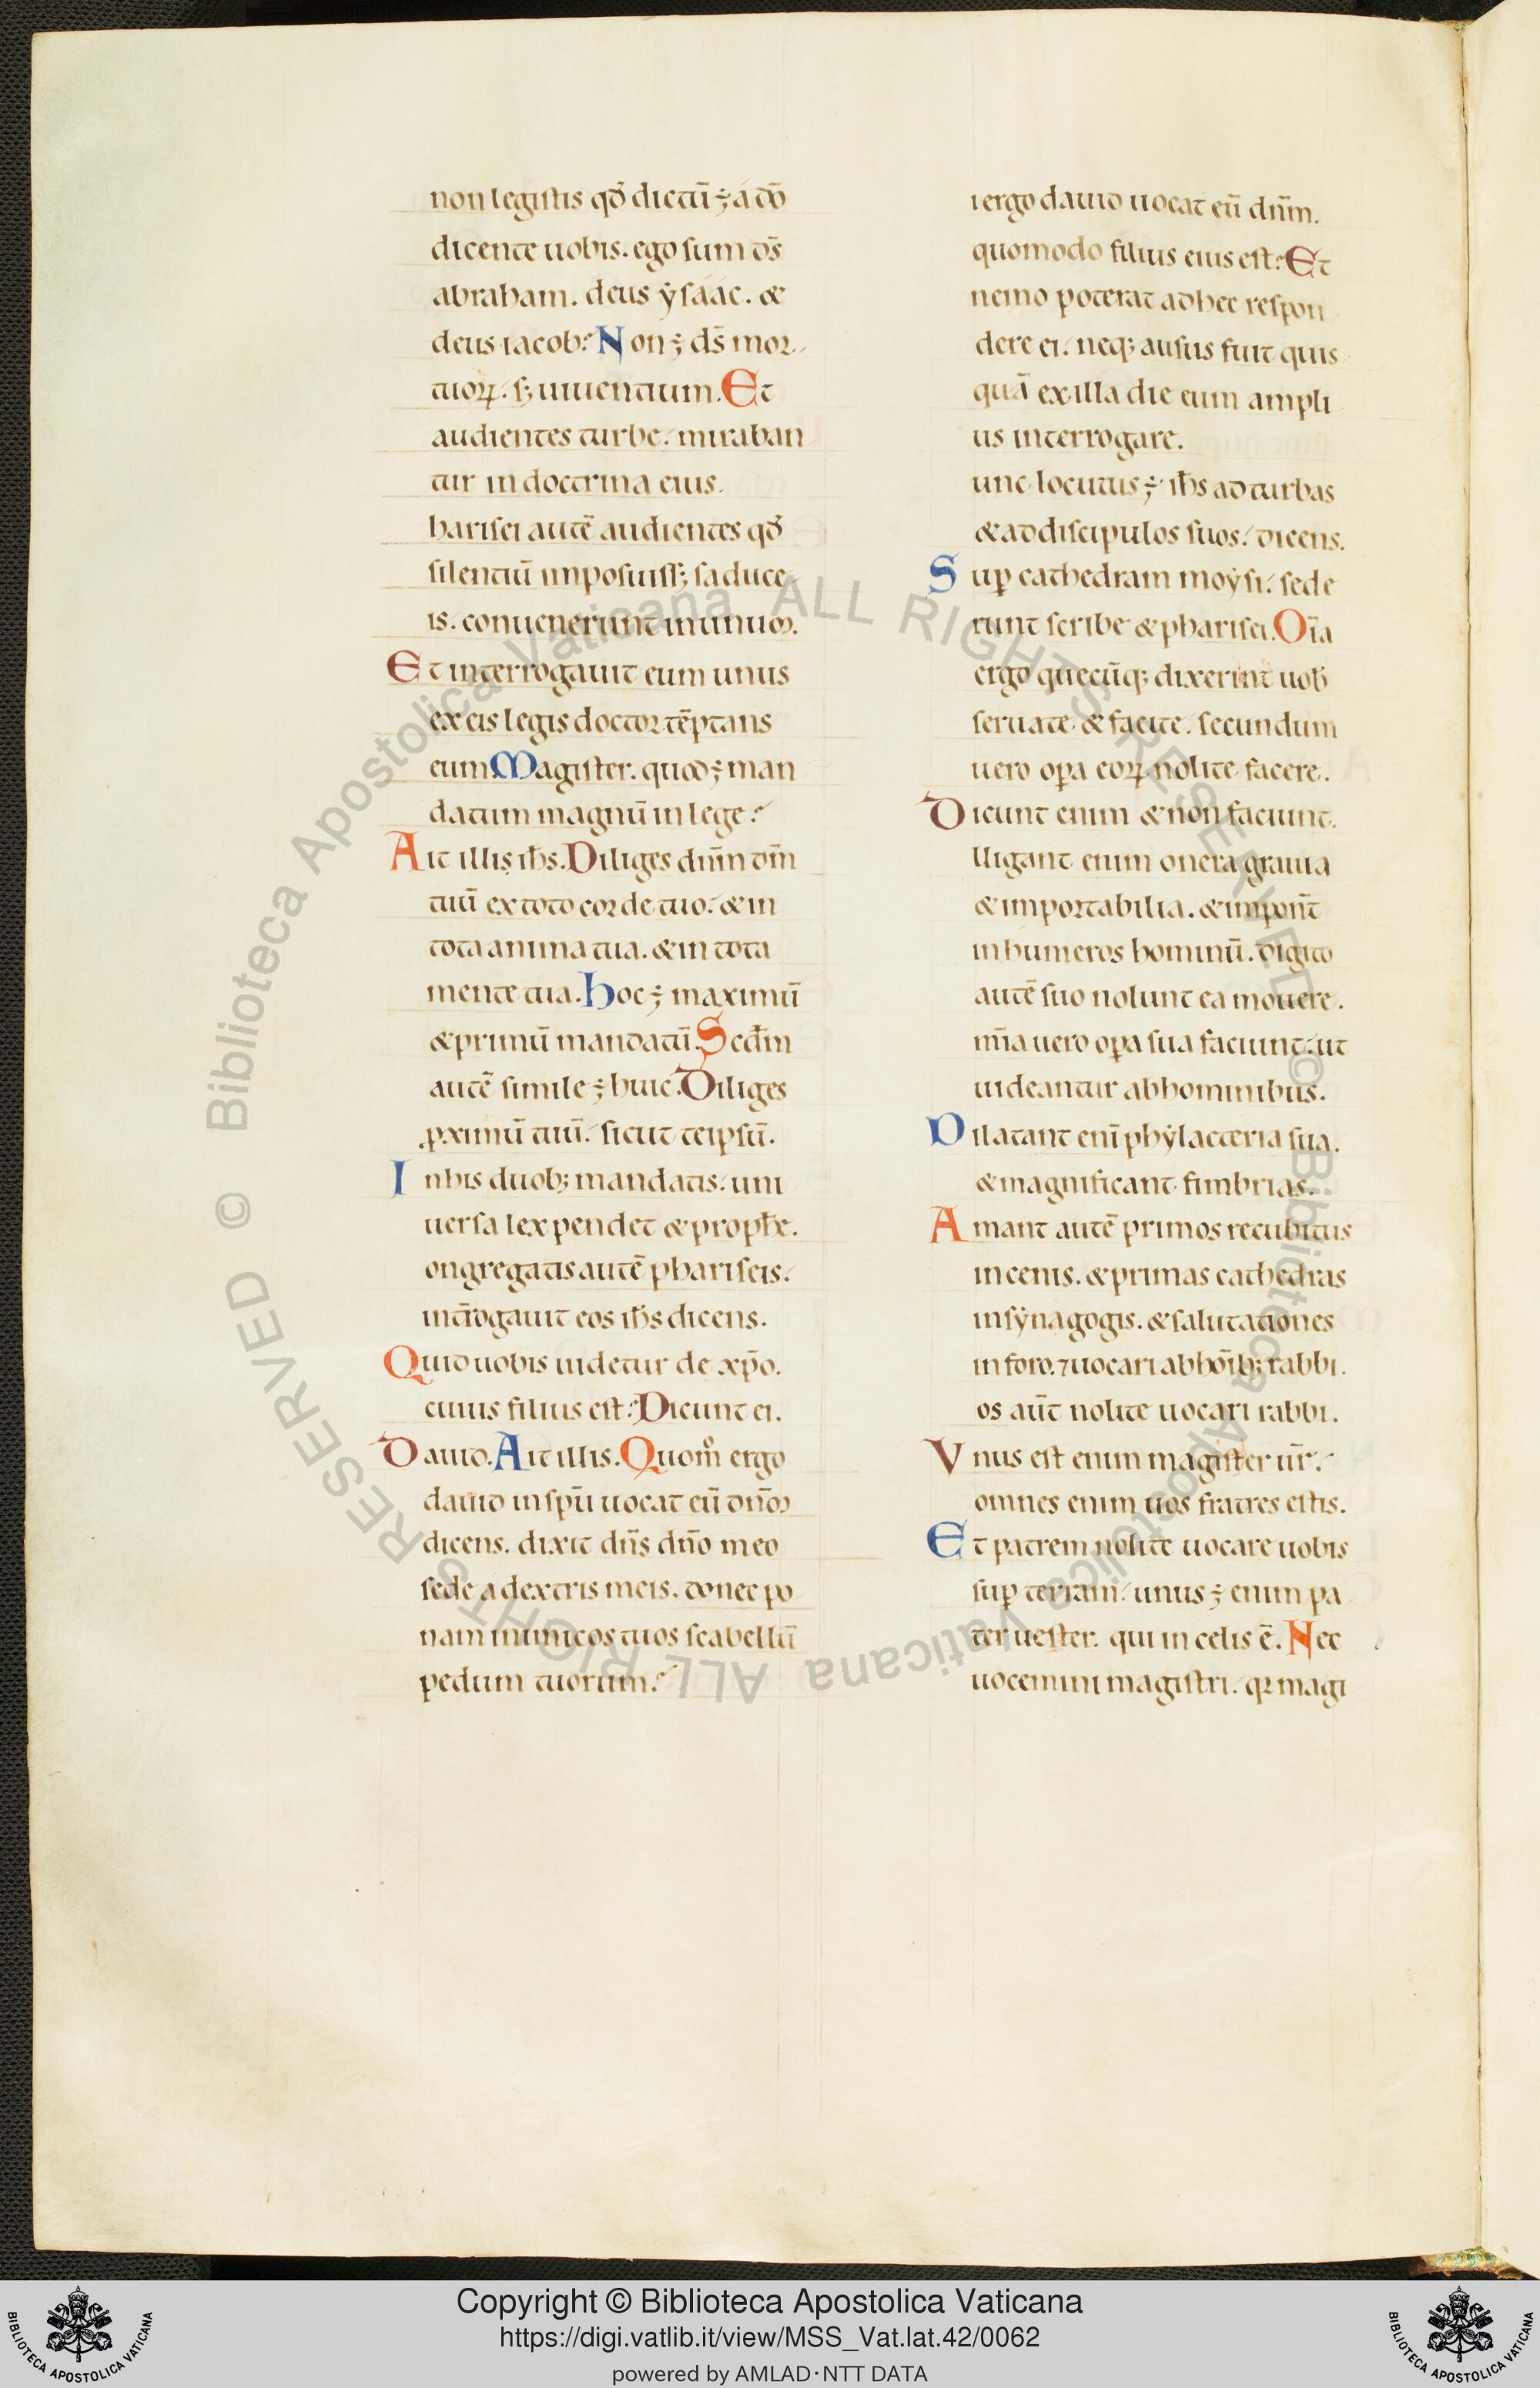 non legistis qđ dictū ÷ a dō
dicente uobis. ego sum ds̄
abraham. deus ẏsáác. &
deus iacob? Non ÷ ds̄ mor
tuoꝝ. s; uiuentium. Et
audientes turbe. miraban
tur in doctrina eius.
harisei autē audientes qđ
silentiū imposuiss; saduce
is. conuenerunt in unuꝫ.
Et interrogauit eum unus
ex eis legis doctor tēptans
eum Magister. quod ÷ man
datum magnū in lege?
Ait illis ihs̄. Diliges dnm̄ dm̄
tuū ex toto corde tuo. & in
tota anima tua. & in tota
mente tua. hoc ÷ maximū
& primū mandatū. Scdm̄
autē simile ÷ huic. Diliges
ꝓximū tuū. sicut teipsū.
In his duob; mandatis. uni
uersa lex pendet & prophē.
ongregatis autē phariseis.
int̄rogauit eos ihs̄ dicens.
Quid uobis uidetur de xp̄o.
cuius filius est? Dicunt ei.
Dauid. Ait illis. Quom̊ ergo
dauid in spū uocat eū dnōꝫ
dicens. dixit dn̄s dn̄o meo
sede a dextris meis. donec po
nam inimicos tuos scabellū
pedum tuorum?
i ergo dauid uocat eū dnm̄.
quomodo filius eius est? Et
nemo poterat ad hec respon
dere ei. neq; ausus fuit quis
quā ex illa die eum ampli
us interrogare.
unc locutus ÷ ihs̄ ad turbas
& ad discipulos suos. dicens.
Suꝑ cathedram moẏsi. sede
runt scribe & pharisei. Oīa
ergo quecūq; dixerint uob̄
seruate & facite. secundum
uero oꝑa eoꝝ nolite facere.
Dicunt enim & non faciunt.
lligant enim onera grauia
& importabilia. & impon̄t
in humeros hominū. digito
autē suo nolunt ea mouere.
mīa uero oꝑa sua faciunt. ut
uideantur ab hominibus.
Dilatant enī phẏlacteria sua.
& magnificant fimbrias.
Amant autē primos recubitus
in cenis. & primas cathedras
in sẏnagogis. & salutationes
in foro. ⁊ uocari ab hoīb; rabbi.
os aūt nolite uocari rabbi.
Vnus est enim magister ur̄.
omnes enim uos fratres estis.
Et patrem nolite uocare uobis
suꝑ terram. unus ÷ enim pa
ter uester. qui in celis ē. Nec
uocemini magistri. qꝛ magi
© Biblioteca Apostolica Vaticana ALL RIGHTS RESERVED © Biblioteca Apostolica Vaticana ALL RIGHTS RESERVED
Copyright © Biblioteca Apostolica Vaticana
https://digi.vatlib.it/view/MSS_Vat.lat.42/0062
powered by AMLAD·NTT DATA
BIBLIOTECA APOSTOLICA VATICANA
BIBLIOTECA APOSTOLICA VATICANA